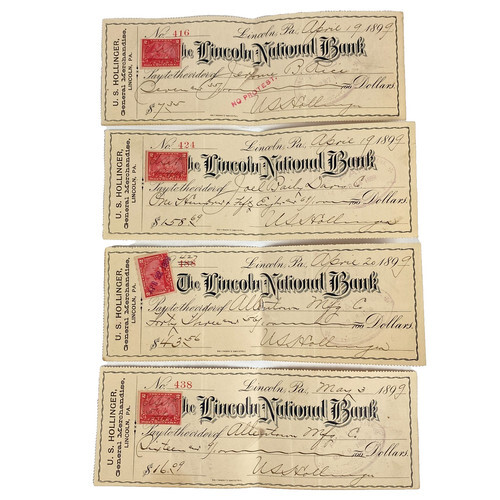 U. S. HOLLINGER,
General Merchandise,
LINCOLN, PA.
No. 416
Lincoln, Pa. April 19 1899
The Lincoln National Bank
Pay to the order of Jerome B. Rice
Seven and 35/100 Dollars.
NO PROTEST.
$7.35 U S Hollinger
U. S. HOLLINGER,
General Merchandise,
LINCOLN, PA.
No. 424
Lincoln, Pa. April 19 1899
The Lincoln National Bank
Pay to the order of Joel Baily Davis Co
One Hundred Fifty Eight and 69/100 Dollars.
$158.69 U S Hollinger
U. S. HOLLINGER,
General Merchandise,
LINCOLN, PA.
Lincoln, Pa. April 20 1899
The Lincoln National Bank
Pay to the order of Allentown Mfg Co
Forty Three and 56/100 Dollars.
$43.56 U S Hollinger
U. S. HOLLINGER,
General Merchandise,
LINCOLN, PA.
No. 438
Lincoln, Pa. May 3 1899
The Lincoln National Bank
Pay to the order of Allentown Mfg Co
Sixteen and /100 Dollars.
$16.29 U S Hollinger